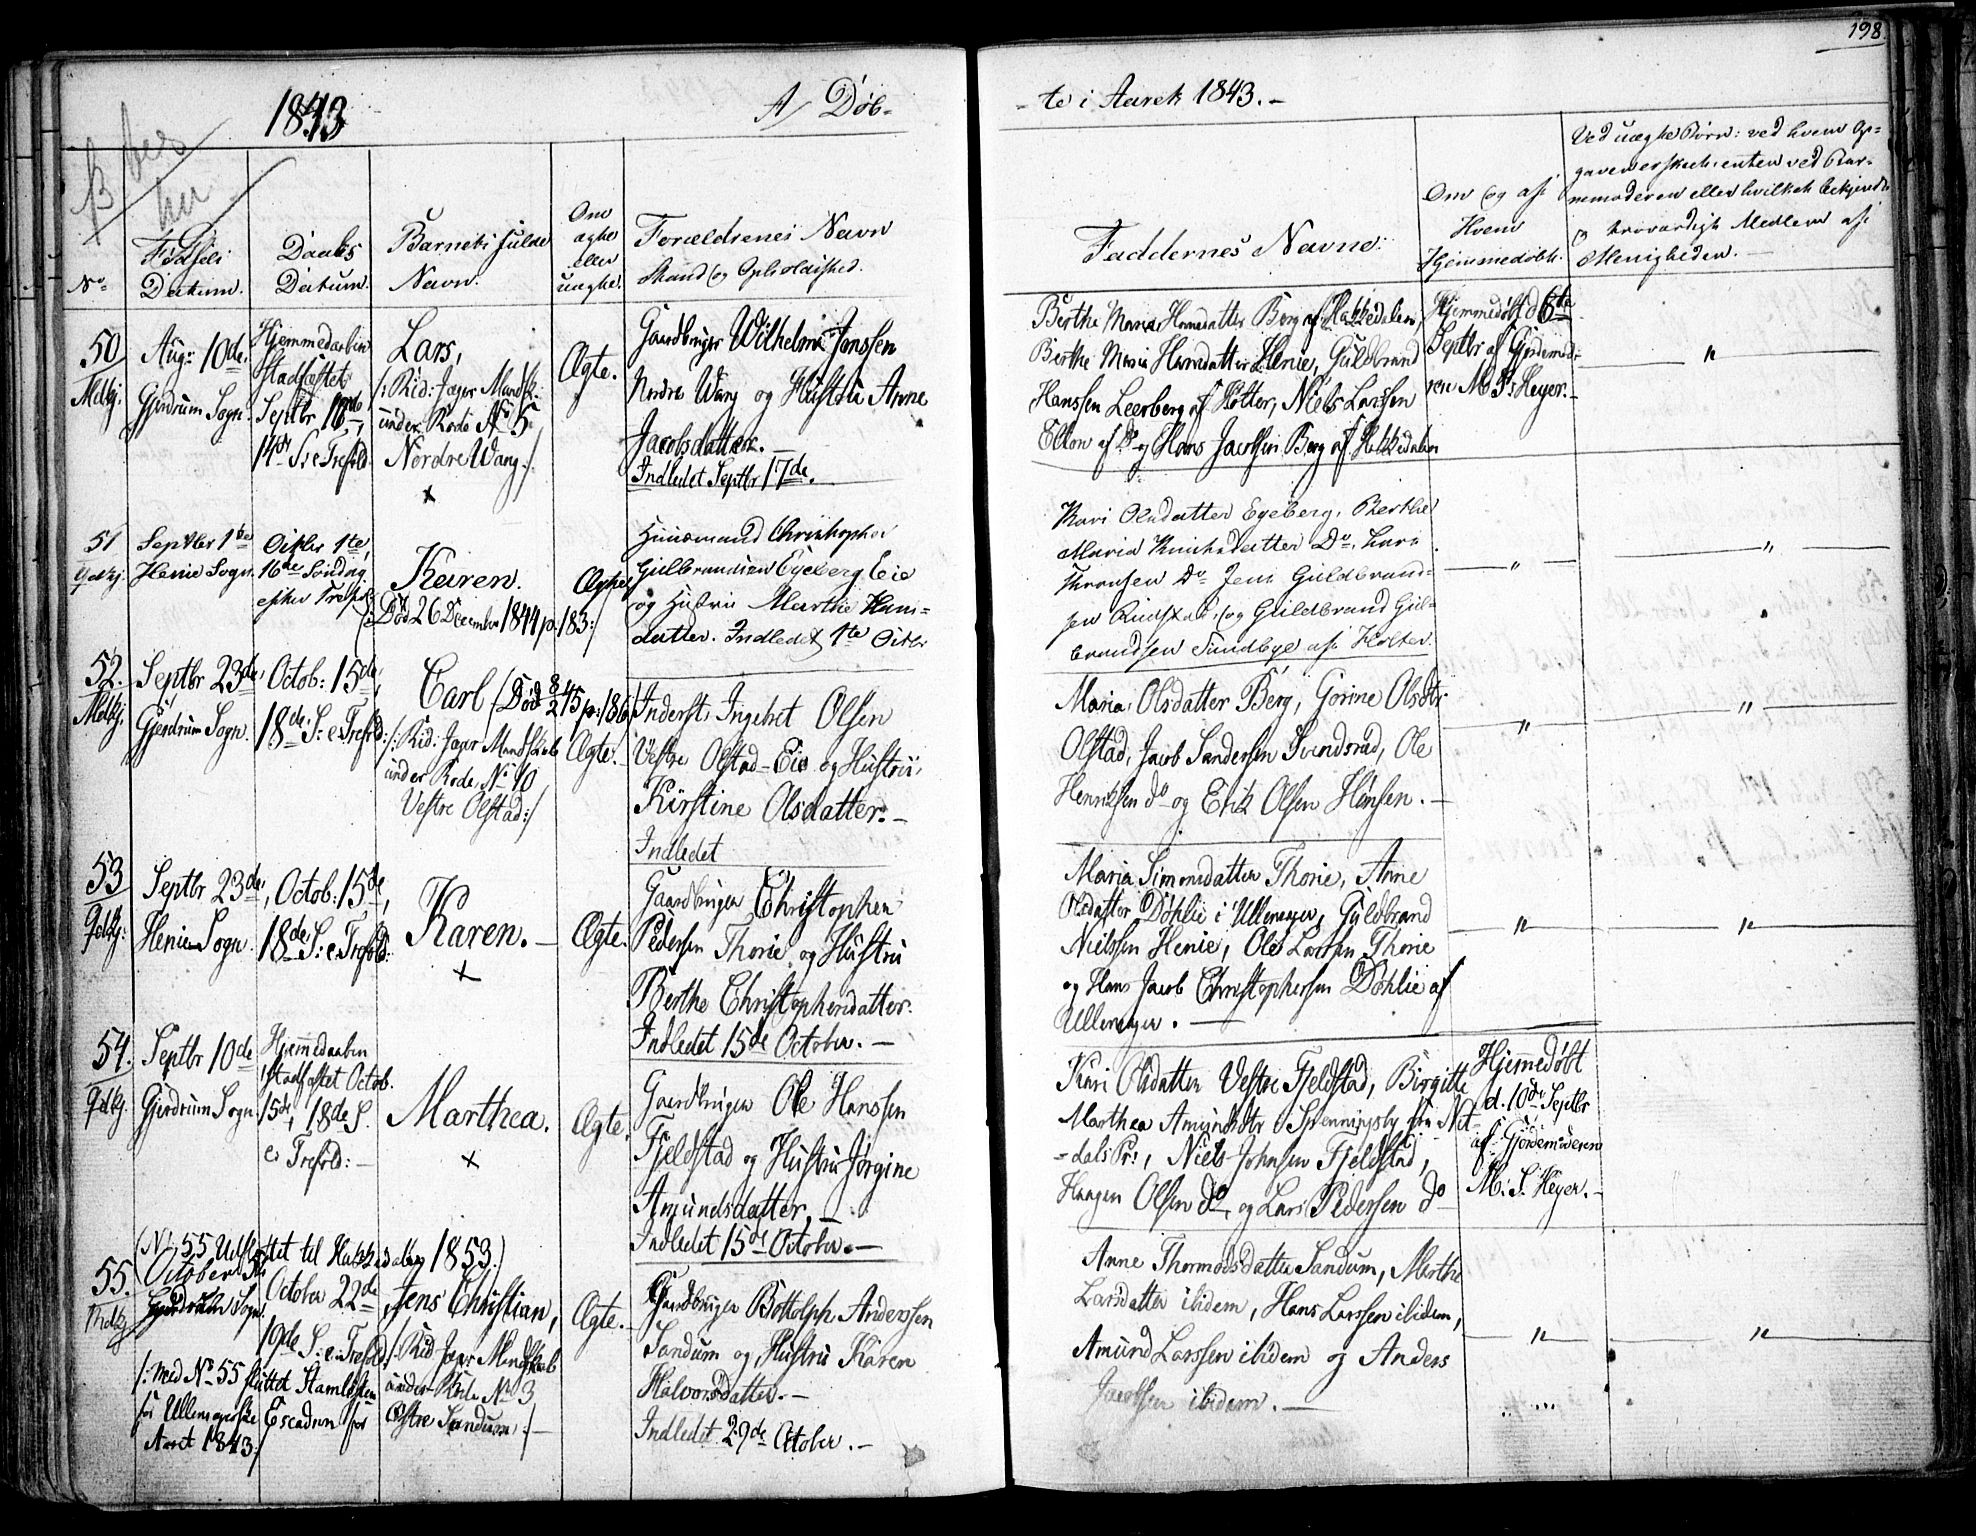 198
1843
A/ Döb-
-te i Aaret 1843.-
No
Födsels
Datum.
Daabs
Datum.
Barnets fulde
Navn.
Om
ægte
eller
uægte.
Forældrenes Navn
Stand og Opholdssted.
Faddernes Navne.
Om og af
Hvem
Hjemmedöbt.
Ved uægte Börn: ved hvem Op-
gaven er skeet, enten ved Bar-
nemoderen eller hvilket bekjendt
og troværdigt Medlem af
Menigheden.-
50
Mdkj.
Aug: 10de
Gjerdrum Sogn.
Hjemmedaaben
Stadfæstet
Septbr 17de,
14de S: e Trefold:
Lars,
/: Rid: Jæger Mandsk:
under Rode No 5
Nordre Wang:/
x
Ægte.
Gaardbruger Wilhelm Jonssen
Nordre Wang og Hustru Anne
Jacobsdatter.
Indledet Septbr 17de.
Berthe Maria Hansdatter Berg af Hakkedalen,
Berthe Maria Hansdatter Henie, Guldbrand
Hanssen Leerberg af Holter, Niels Larssen
Elton af Do og Hans Jacobsen Berg af Hakkedalen
Hjemmedöbt d 6te
Septbr af Gjordemode-
ren M. S. Heyer.-
"
51
Qdkj.
Septbr 1te
Henie Sogn.
Octbr 1te,
16de Söndag
efter Trefold:
Karen.
/: Död 26 December 1844 p. 183:/
Ægte
Huusmand Christopher
Gulbrandsen Egeberg Eie
og Hustru Marthe Hans-
datter. Indledet 1te Octbr
Kari Olsdatter Egeberg, Berthe
Maria Knudsdatter Do, Lars
Thronsen Do Jens Guldbrand-
sen Rudstad, og Guldbrand Gul-
brandsen Sundbye af Holter.
"
"
52.
Mdkj.
Septbr 23de,
Gjerdrum Sogn.
Octob: 15de,
18de S: e Trefld:
Carl (Död 8/2 45 p: 186)
/: Rid: Jæger Mandskab
under Rode No 10
Vestre Olstad:/
Ægte.
Inderst Ingebret Olsen
Vestre Olstad-Eie og Hustru
Kirstine Olsdatter.-
Indledet
Maria Olsdatter Berg, Gorine Olsdtr
Olstad, Jacob Sandersen Svendsrud, Ole
Henriksen do og Erik Olsen Hönsen.-
"
"
53
Qdkj.
Septbr 23de,
Henie Sogn.
Octob: 15de,
18de S: e Trefold:
Karen.-
x
Ægte.
Gaardbruger Christopher
Pedersen Thorie og Hustru
Berthe Christophersdatter.
Indledet 15de October.-
Maria Simensdatter Thorie, Anne
Olsdatter Döhlie i Ullensager, Guldbrand
Nielssen Henie, Ole Larssen Thorie
og Hans Jacob Christophersen Döhlie af
Ullensager.-
"
"
54.
Qdkj.
Septbr 10de
Gjerdrum Sogn.
Hjemmedaaben
stadfæstet Octob.
15de, 18de S.
e. Trefold:-
Marthea.
x
Ægte.
Gaardbruger Ole Hanssen
Fjeldstad og Hustru Jörgine
Amundsdatter.-
Indledet 15de October.-
Kari Olsdatter Vestre Fjeldstad, Birgitte
Marthea Amundsdtr Spenningsby fra Nit-
-dals Pr:, Niels Johnsen Fjeldstad,
Haagen Olsen do, og Lars Pedersen do
Hjemmedöbt
d. 10de Septbr
af Gjordemoderen
M. S. Heyer.-
(No 55 Udflyttet til Hakkedalen 1853.)
55.
Mdkj
October 5te
Gjerdrum Sogn.
October 22de
19de S: e: Trefold:
Jens Christian,
/: Rid: Jæger Mandskab
under Rode No 3
Østre Sandum:/-
/: Med No 55 sluttet Stamlisten
for Ullensagerske Escadron for
Aaret 1843:/
Ægte.
Gaardbruger Bottolph Anderssen
Sandum og Hustru Karen
Halvorsdatter.-
Indledet 29de October.-
Anne Thormodsdatter Sandum, Marthe
Larsdatter ibidem, Hans Larssen ibidem,
Amund Larssen ibidem og Anders
Jacobsen ibidem.-
"
"